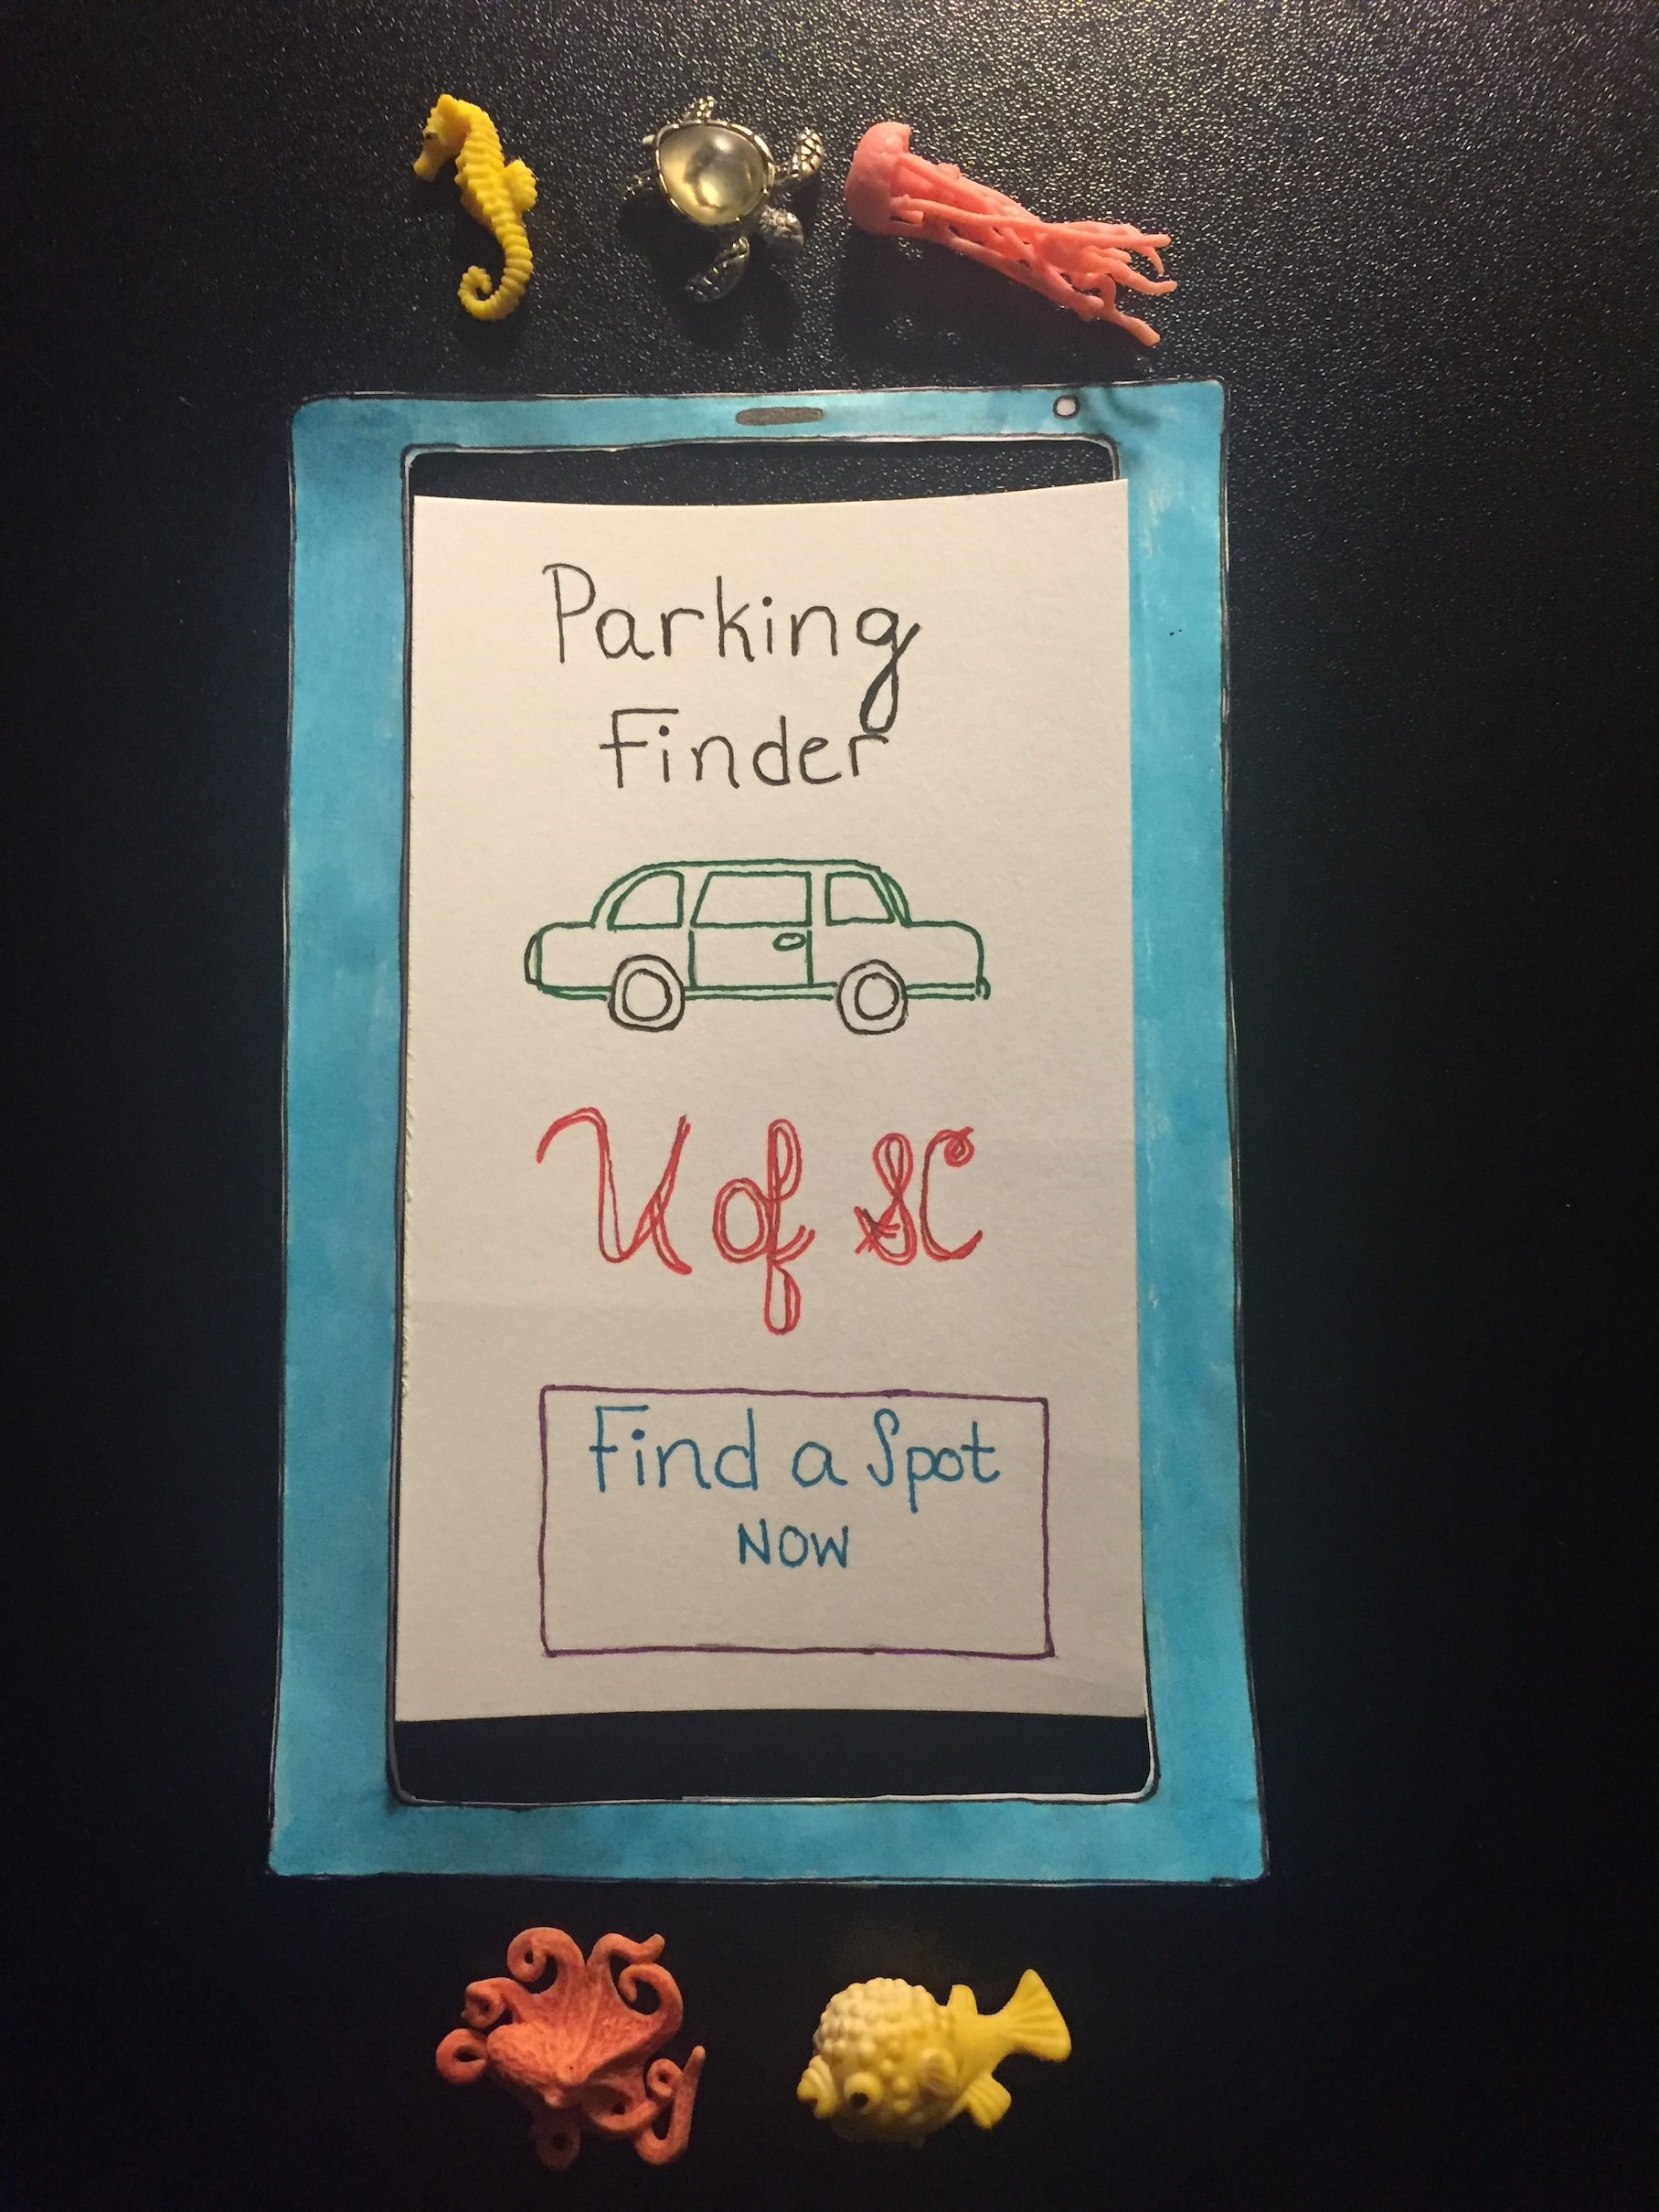 Parking
Finder
U of SC
Find a Spot
NOW